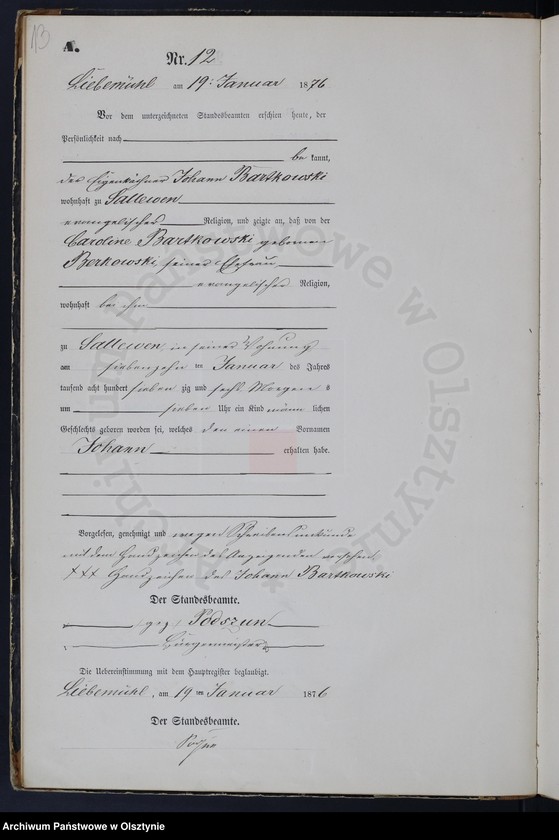 13
A.
Nr. 12
Liebemühl am 19. Januar 1876
Vor dem unterzeichneten Standesbeamten erschien heute, der
Persönlichkeit nach
be kannt,
der Eigenkäthner Johann Bartkowski
wohnhaft zu Sallewen
evangelischer Religion, und zeigte an, daß von der
Caroline Bartkowski geborenen
Berkowski seiner Ehefrau
evangelischer Religion,
wohnhaft bei ihm
zu Sallewen in seiner Wohnung
am siebenzehn ten Januar des Jahres
tausend acht hundert sieben zig und sechs Morgens
um sieben Uhr ein Kind männ lichen
Geschlechts geboren worden sei, welches den einen Vornamen
Johann erhalten habe.
Vorgelesen, genehmigt und wegen Schreibensunkunde
mit dem Handzeichen des Anzeigenden versehen
+++ Handzeichen des Johann Bartkowski
Der Standesbeamte.
(gez) Podszun
Bürgermeister
Die Uebereinstimmung mit dem Hauptregister beglaubigt.
Liebemühl, am 19 ten Januar 1876
Der Standesbeamte.
Archiwum Państwowe w Olsztynie
Archiwum Państwowe w Olsztynie